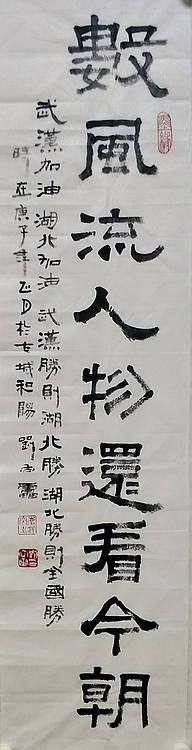 數風流人物還看今朝
武漢加油湖北加油武漢勝則湖北勝湖北勝則全國勝
時在庚子年正月於古城和陽劉